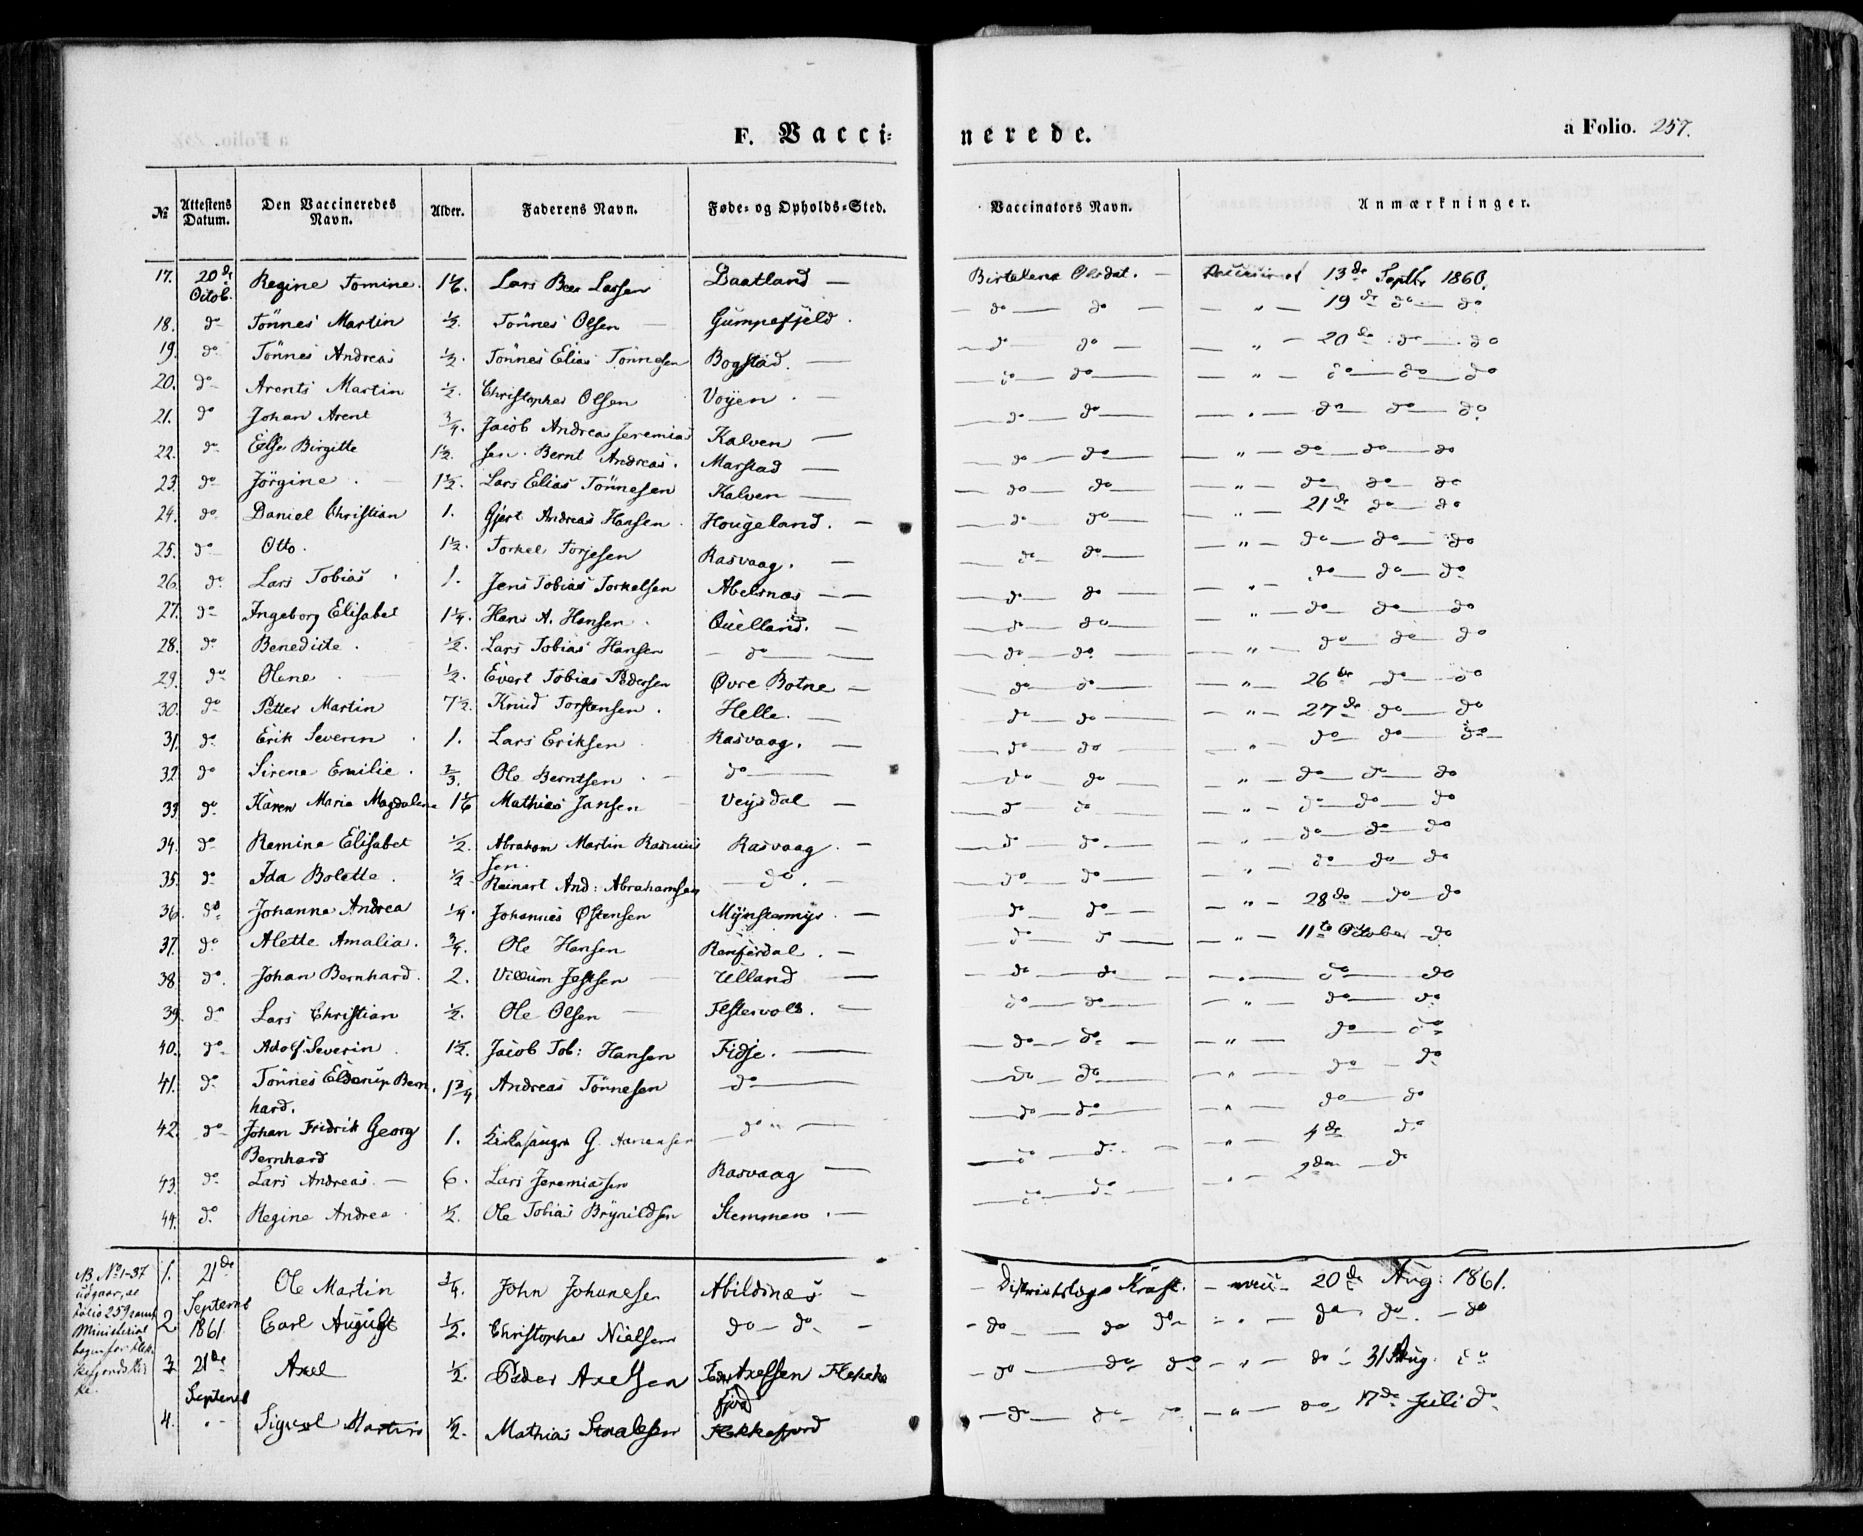 F. Vacci-
nerede.
a Folio. 257.
№ Attestens Datum. Den Vaccineredes Navn. Alder. Faderens Navn. Føde- og Opholds-Sted. Vaccinators Navn. Anmærkninger.
17. 20de Octob. Regine Tomine. 1 1/6. Lars Lassen Daatland — Olsdat. — 13de Septbr 1860.
18. do Tönnes Martin 1/2. Tönnes Olsen — Gumpefjeld. — do — do — — " — 19de do — do
19. do Tönnes Andreas 1/2. Tönnes Elias Tönnesen Bogstad. — — do do — — " — 20de do — do
20. do Arents Martin 1/2. Christopher Olsen Voyen. — — do — do — — " — do — do — do
21. do Johan Arent 3/4. Jacob Andreas Jeremias Kalven — — do — do — — " — do — do — do
22. do Else Birgitte 1 1/2. sen. Bernt Andreas. Marstad — — do — do — — " — do — do — do
23. do Jörgine. — 1 1/2. Lars Elias Tönnesen Kalven — — do — do — — " — do — do — do
24. do Daniel Christian 1. Gjert Andreas Hansen. Hougeland. — — do do — — " — 21de do — do
25. do Otto. 1 1/2. Torkel Torjesen Rasvaag. — do do — — " — do — do — do
26. do Lars Tobias 1. Jens Tobias Torkelsen Abelsnæs — — — do — do — — " — do — do — do
27. do Ingeborg Elisabet 1 1/4. Hans A. Hansen. Quelland. — — do — do — — " — do — do — do
28. do Benedicte. 1/2. Lars Tobias Hansen — do — — — do — do — — " — do — do — do
29. do Olene 1/2. Evert Tobias Pedersen Øvre Botne — — do — do — — " — 26de do — do
30. do Petter Martin 7 1/2. Knud Torstensen. Helle. — — do — do — — " — 27de do — do
31. do Erik Severin. 1. Lars Eriksen Rasvaag. — — do — do — — " — do — do — do
32. do Sirena Emilie. 2/3. Ole Berntsen. — do — — do — do — — " — do — do — do
33. do Karen Maria Magdalene 1 1/6 Mathias Jansen Veisdal — — do — do — — " — do — do — do
34. do Remine Elisabet 1/2. Abraham Martin Rasmus Rasvaag. — — do — do — — " — do — do — do
sen.
35. do Ida Bolette. 1/2 Reinart And: Abrahamsen — do. — — do — do — — " — do — do — do
36. do Johanne Andrea 1/4. Johannes Østensen — — do — do — — " — 28de — do — do
37. do Alette Amalia. 3/4. Ole Hansen — do — do — — " — 11te October do
38 do. Johan Bernhard. 2. Villum — Ulland — — do — do — — " — do — do
39. do Lars Christian 1/2. Ole Olsen — — do — do — — " — do — do
40. do Adolf Severin. 1 1/2. Jacob Tob: Hansen Fidje. — — do — do — — " — do — do
41. do Tönnes Elderup Bern 1 3/4 Andreas Tönnesen do — — do — do — — " — do — do
hard.
42. do Johan Fridrik Georg 1. G. — do " — — do — do — — " — do — do
Bernhard
43. do Lars Andreas. — 6. Lars Jeremiasen Rasvaag — — do — do. — — " — 4de do
44. do Regine Andrea 1/2. Ole Tobias Brynildsen Stemmen. — — do — do — — " — 2den — do
NB No 1-37
udgaar, se
folio 259 samt
Ministerial
bogen for Flek-
kefjords Kir
ke.
1. 21de Septemb 1861. Ole Martin 3/4. John Johanesen Abildsnæs — — Districtslæge Kraft. — 20de Aug: 1861.
2. Carl August 1/2. Christopher Nielsen do — do. — — do — do do — " — do do. — do
3. 21de Septemb Axel 1/2. Peder Axelsen Axelsen Flekke — do — do do — " — do — 31 Aug. do
fjord
4. " — Sigval Martin 1/2. Mathias Flekkefjord — do — do — " — do 17de Juli do